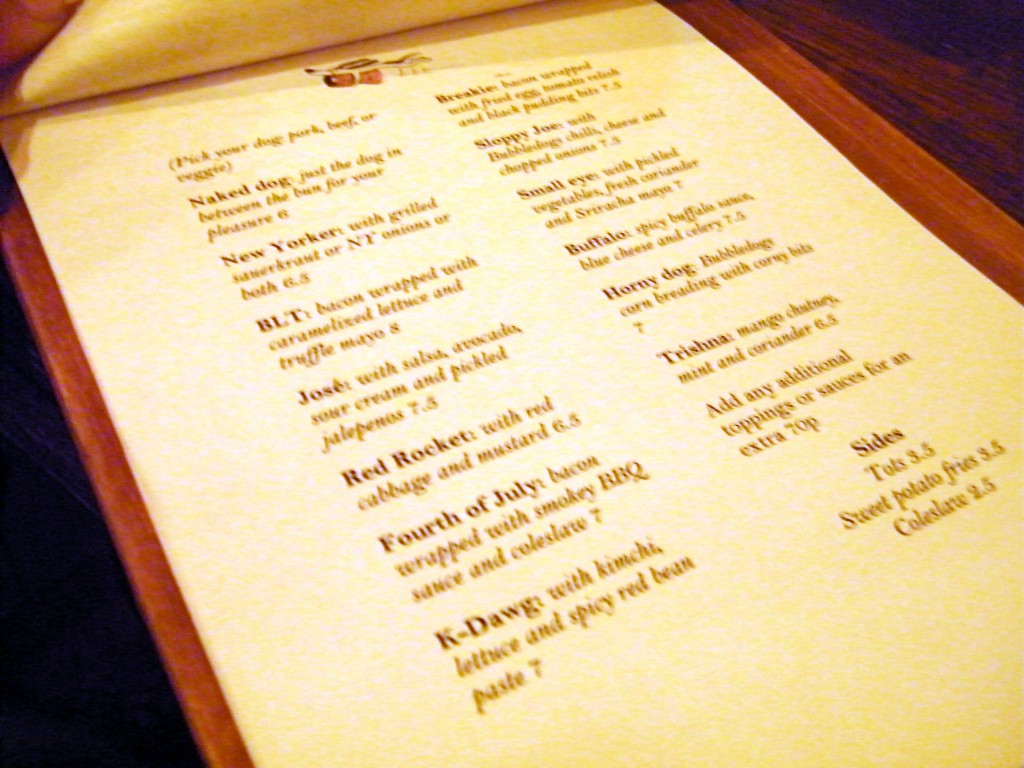 (Pick your dog: pork, beef, or
veggie)
Naked dog: just the dog in
between the bun for your
pleasure 6
New Yorker: with grilled
sauerkraut or NY onions or
both 6.5
BLT: bacon wrapped with
caramelized lettuce and
truffle mayo 8
José: with salsa, avocado,
sour cream and pickled
jalepenos 7.5
Red Rocket: with red
cabbage and mustard 6.5
Fourth of July: bacon
wrapped with smokey BBQ
sauce and coleslaw 7
K-Dawg: with kimchi,
lettuce and spicy red bean
paste 7
Breakie: bacon wrapped
with fried egg, tomato relish
and black pudding bits 7.5
Sloppy Joe: with
Bubbledogs chilli, cheese and
chopped onions 7.5
Small eye: with pickled
vegetables, fresh coriander
and Sriracha mayo 7
Buffalo: spicy buffalo sauce,
blue cheese and celery 7.5
Horny dog: Bubbledogs
corn breading with corny bits
7
Trishna: mango chutney,
mint and coriander 6.5
Add any additional
toppings or sauces for an
extra 70p
Sides
Tots 3.5
Sweet potato fries 3.5
Coleslaw 2.5